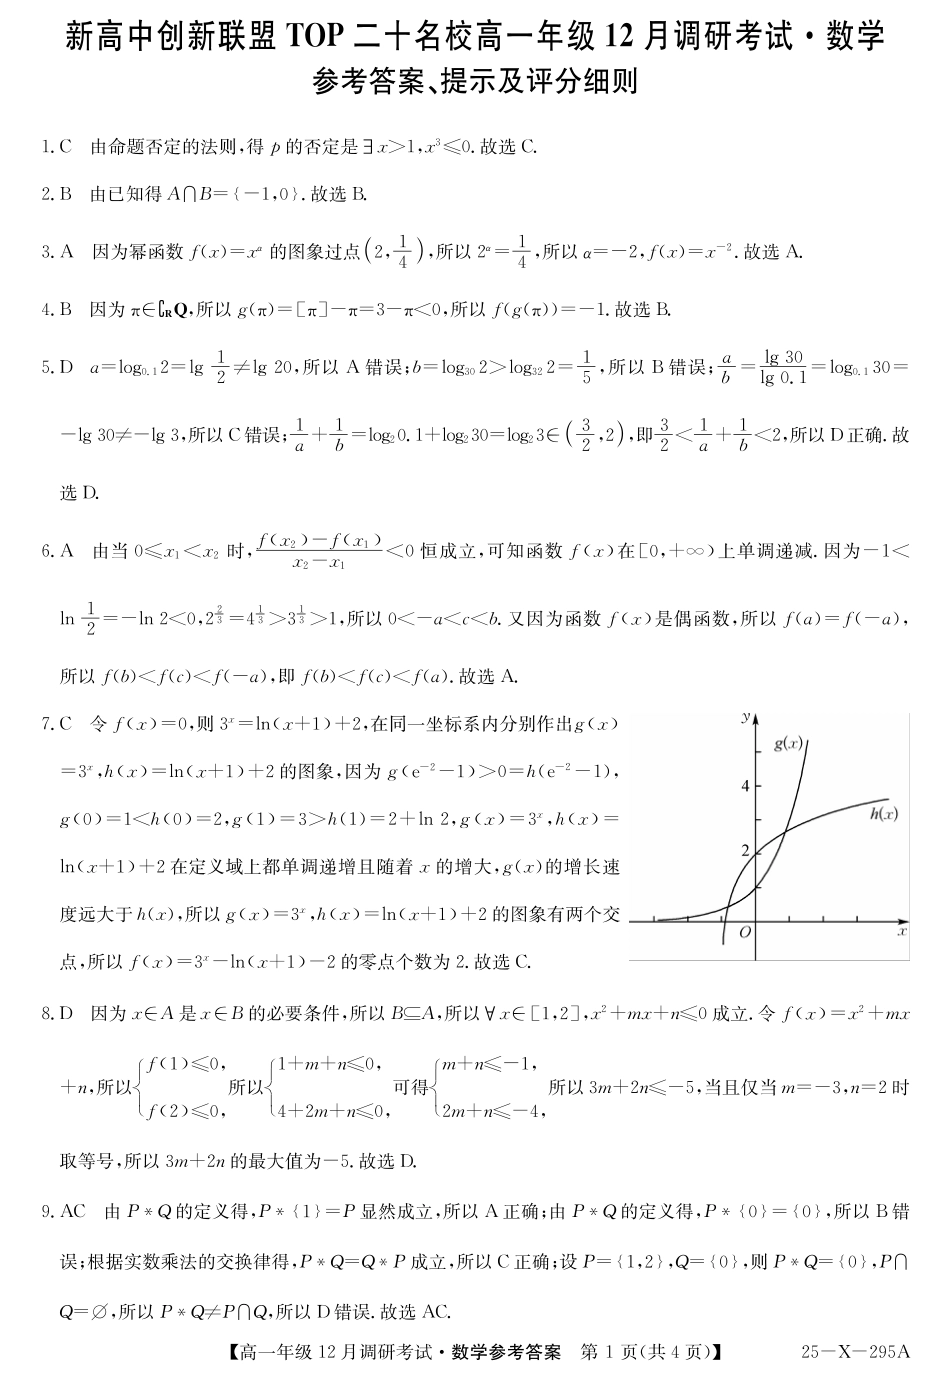 新高中创新联盟 TOP 二十名校高一年级 12 月调研考试·数学
参考答案、提示及评分细则
1. C　由命题否定的法则,得 p 的否定是∃x>1,x³≤0. 故选 C.
2. B　由已知得 A∩B={-1,0}. 故选 B.
3. A　因为幂函数 f(x)=x^α 的图象过点(2,1/4),所以 2^α=1/4,所以 α=-2,f(x)=x⁻². 故选 A.
4. B　因为 π∈∁_R Q,所以 g(π)=[π]-π=3-π<0,所以 f(g(π))=-1. 故选 B.
5. D　a=log_{0.1}2=lg 1/2≠lg 20,所以 A 错误;b=log_{30}2>log_{32}2=1/5,所以 B 错误;a/b=lg 30/lg 0.1=log_{0.1}30=
-lg 30≠-lg 3,所以 C 错误;1/a+1/b=log₂0.1+log₂30=log₂3∈(3/2,2),即3/2<1/a+1/b<2,所以 D 正确. 故
选 D.
6. A　由当 0≤x₁<x₂ 时,(f(x₂)-f(x₁))/(x₂-x₁)<0 恒成立,可知函数 f(x)在[0,+∞)上单调递减. 因为-1<
ln 1/2=-ln 2<0,2^{2/3}=4^{1/3}>3^{1/3}>1,所以 0<-a<c<b. 又因为函数 f(x)是偶函数,所以 f(a)=f(-a),
所以 f(b)<f(c)<f(-a),即 f(b)<f(c)<f(a). 故选 A.
7. C　令 f(x)=0,则 3^x=ln(x+1)+2,在同一坐标系内分别作出g(x)
=3^x,h(x)=ln(x+1)+2 的图象,因为 g(e⁻²-1)>0=h(e⁻²-1),
g(0)=1<h(0)=2,g(1)=3>h(1)=2+ln 2,g(x)=3^x,h(x)=
ln(x+1)+2 在定义域上都单调递增且随着 x 的增大,g(x)的增长速
度远大于 h(x),所以 g(x)=3^x,h(x)=ln(x+1)+2 的图象有两个交
点,所以 f(x)=3^x-ln(x+1)-2 的零点个数为 2. 故选 C.
y
g(x)
4
h(x)
2
O
x
8. D　因为 x∈A 是 x∈B 的必要条件,所以 B⊆A,所以∀x∈[1,2],x²+mx+n≤0 成立. 令 f(x)=x²+mx
+n,所以{f(1)≤0, f(2)≤0, 所以{1+m+n≤0, 4+2m+n≤0, 可得{m+n≤-1, 2m+n≤-4, 所以 3m+2n≤-5,当且仅当 m=-3,n=2 时
取等号,所以 3m+2n 的最大值为-5. 故选 D.
9. AC　由 P*Q的定义得,P*{1}=P 显然成立,所以 A 正确;由 P*Q的定义得,P*{0}={0},所以 B 错
误;根据实数乘法的交换律得,P*Q=Q*P 成立,所以 C 正确;设 P={1,2},Q={0},则 P*Q={0},P∩
Q=∅,所以 P*Q≠P∩Q,所以 D 错误. 故选 AC.
【高一年级 12 月调研考试·数学参考答案　第 1 页(共 4 页)】　25-X-295A